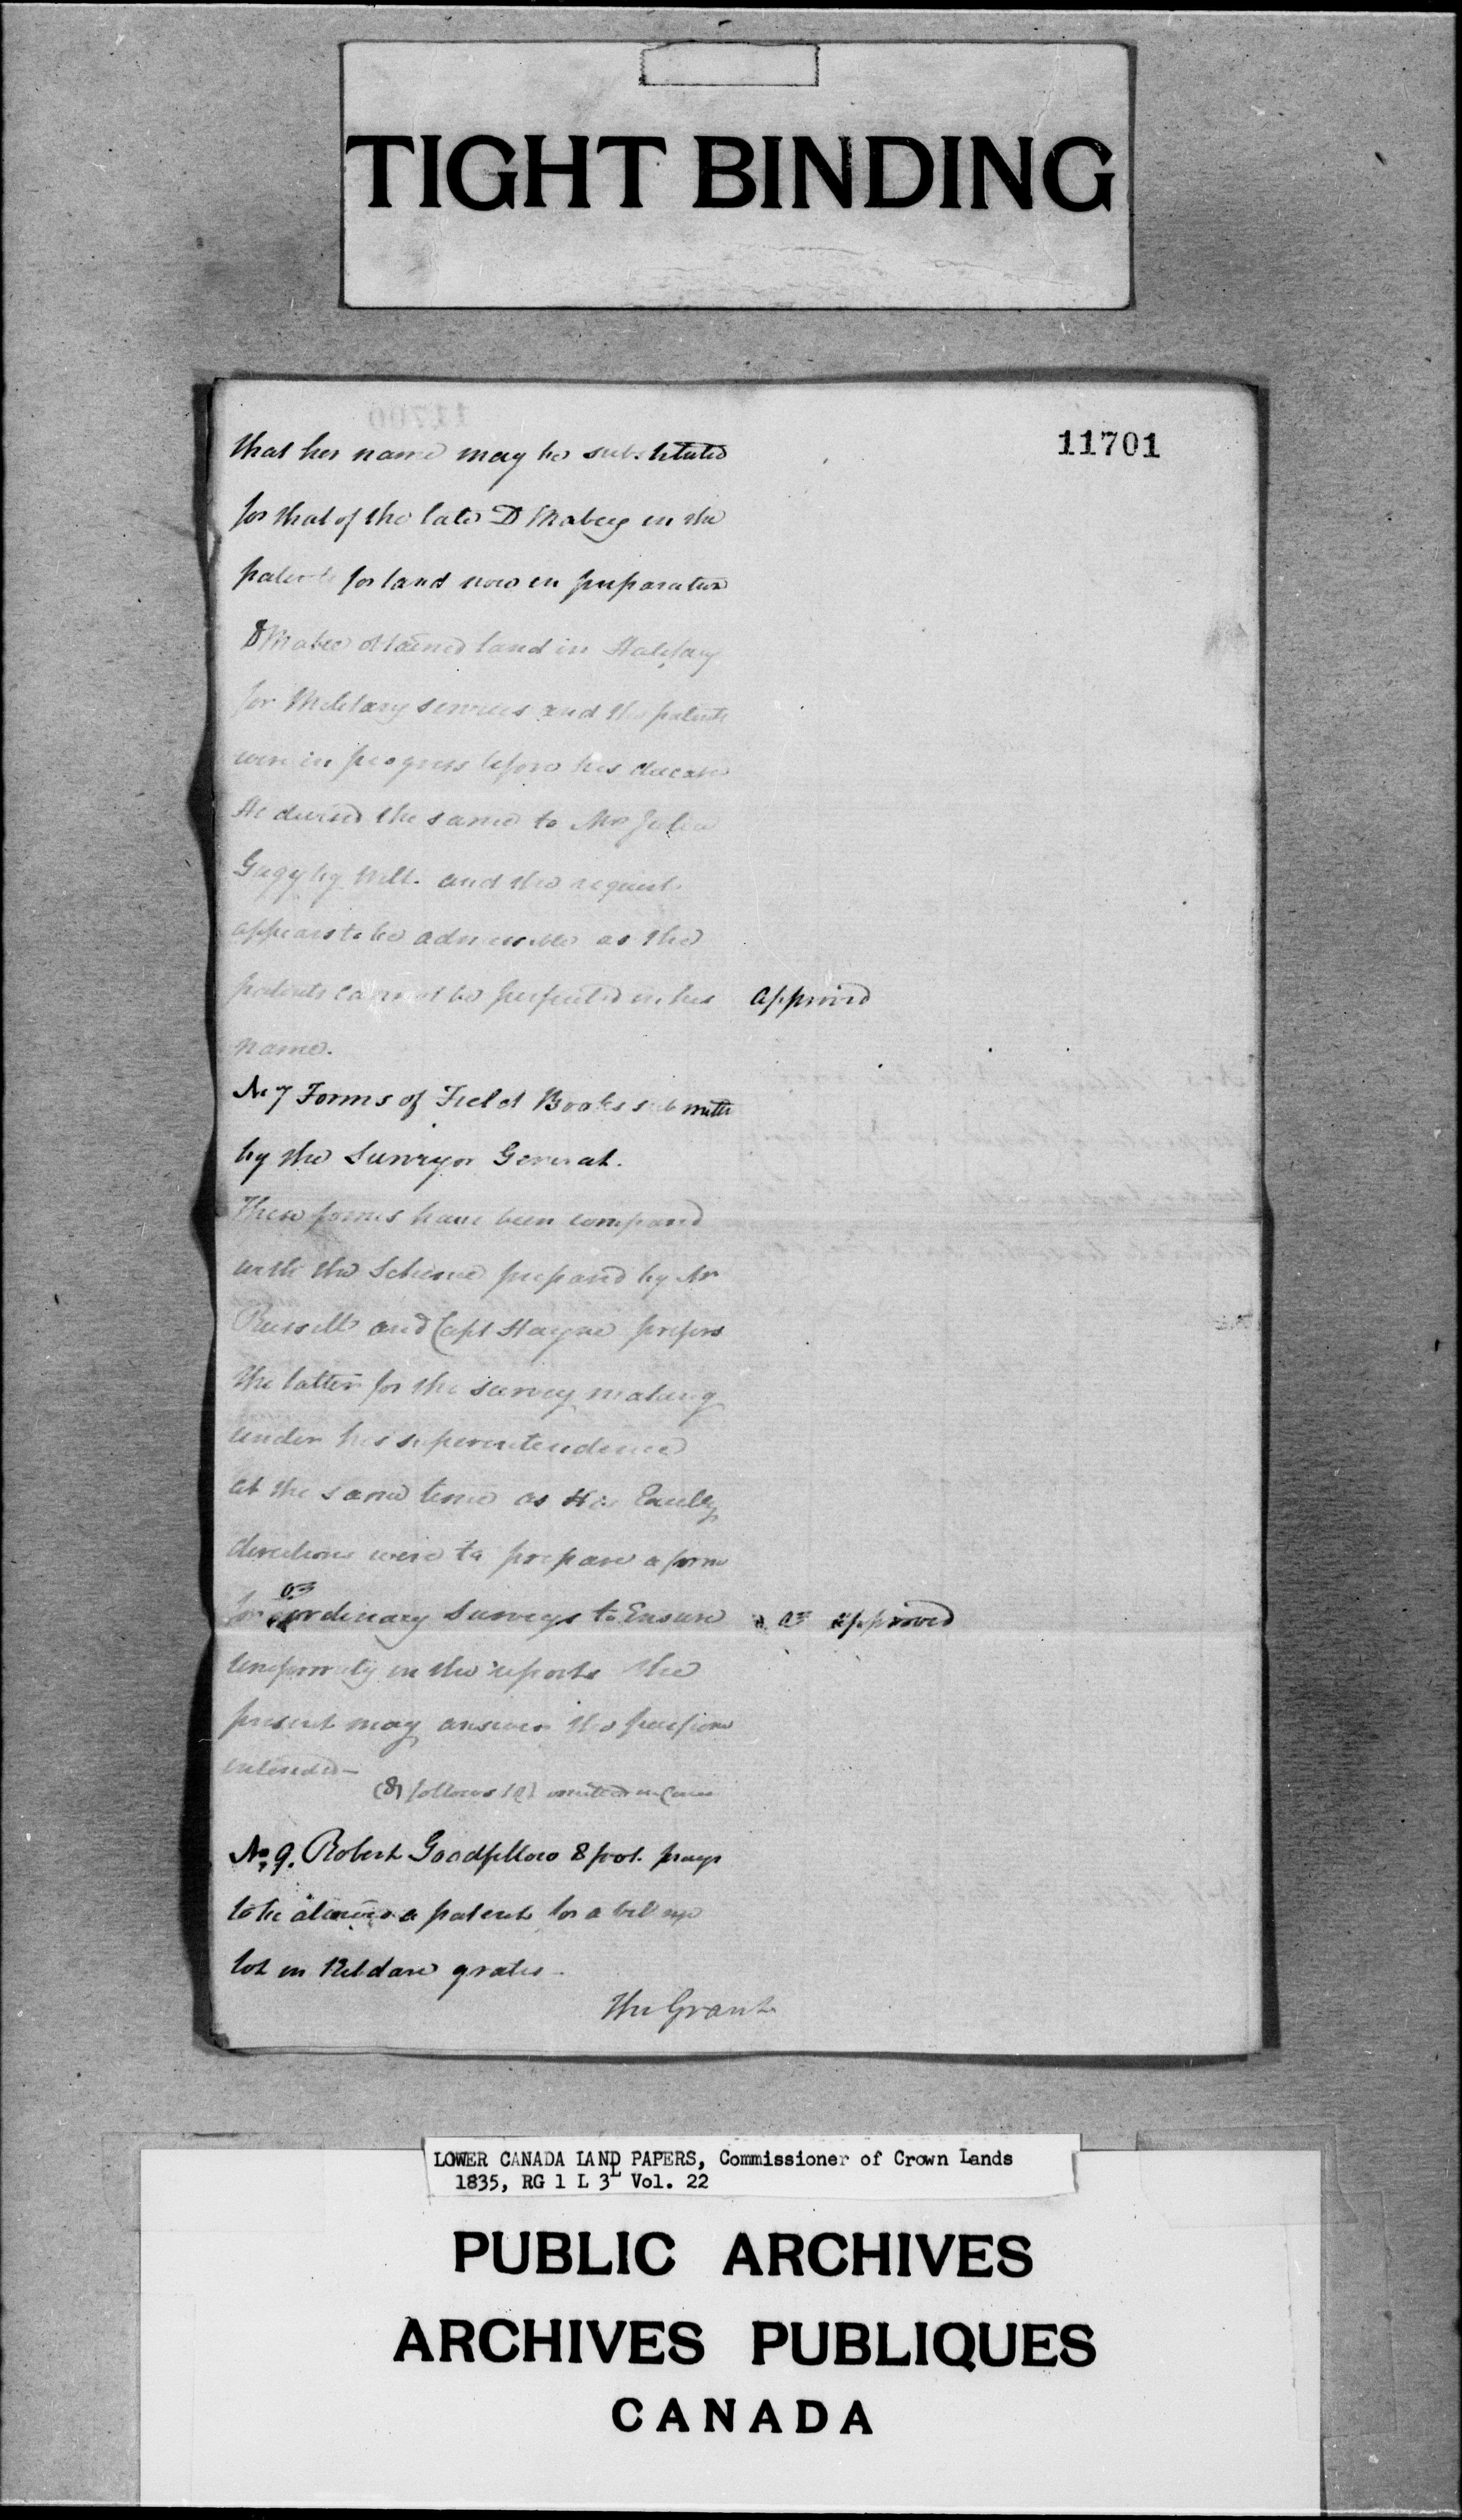 TIGHT BINDING
11701
that her name may be substituted
for that of the late D Mabey in the
patents for land now in preparation
D Mabee obtained land in Halifax
for Military services and the patents
were in progress before his decease
He devised the same to Mrs Julia
Gugy by Will. and the request
appears to be admissible as the
patents cannot be perfected in his approved
name.
No 7 Forms of Field Books submitte
by the Surveyor General.
These forms have been compared
with the Scheme prepared by Mr
Russell and Capt Hayne prefers
the latter for the survey making
under his superintendence
at the same time as His Excelly
directions were to prepare a form
for ordinary Surveys to Ensure approved
uniformity in the reports the
present may answer the purpose
intended—
(8) follows (9) omitted in
No 9. Robert Goodfellow prays
to be allowed a patent for a
lot in Kildare gratis—
The Grant
LOWER CANADA LAND PAPERS, Commissioner of Crown Lands
1835, RG 1 L 3L Vol. 22
PUBLIC ARCHIVES
ARCHIVES PUBLIQUES
CANADA